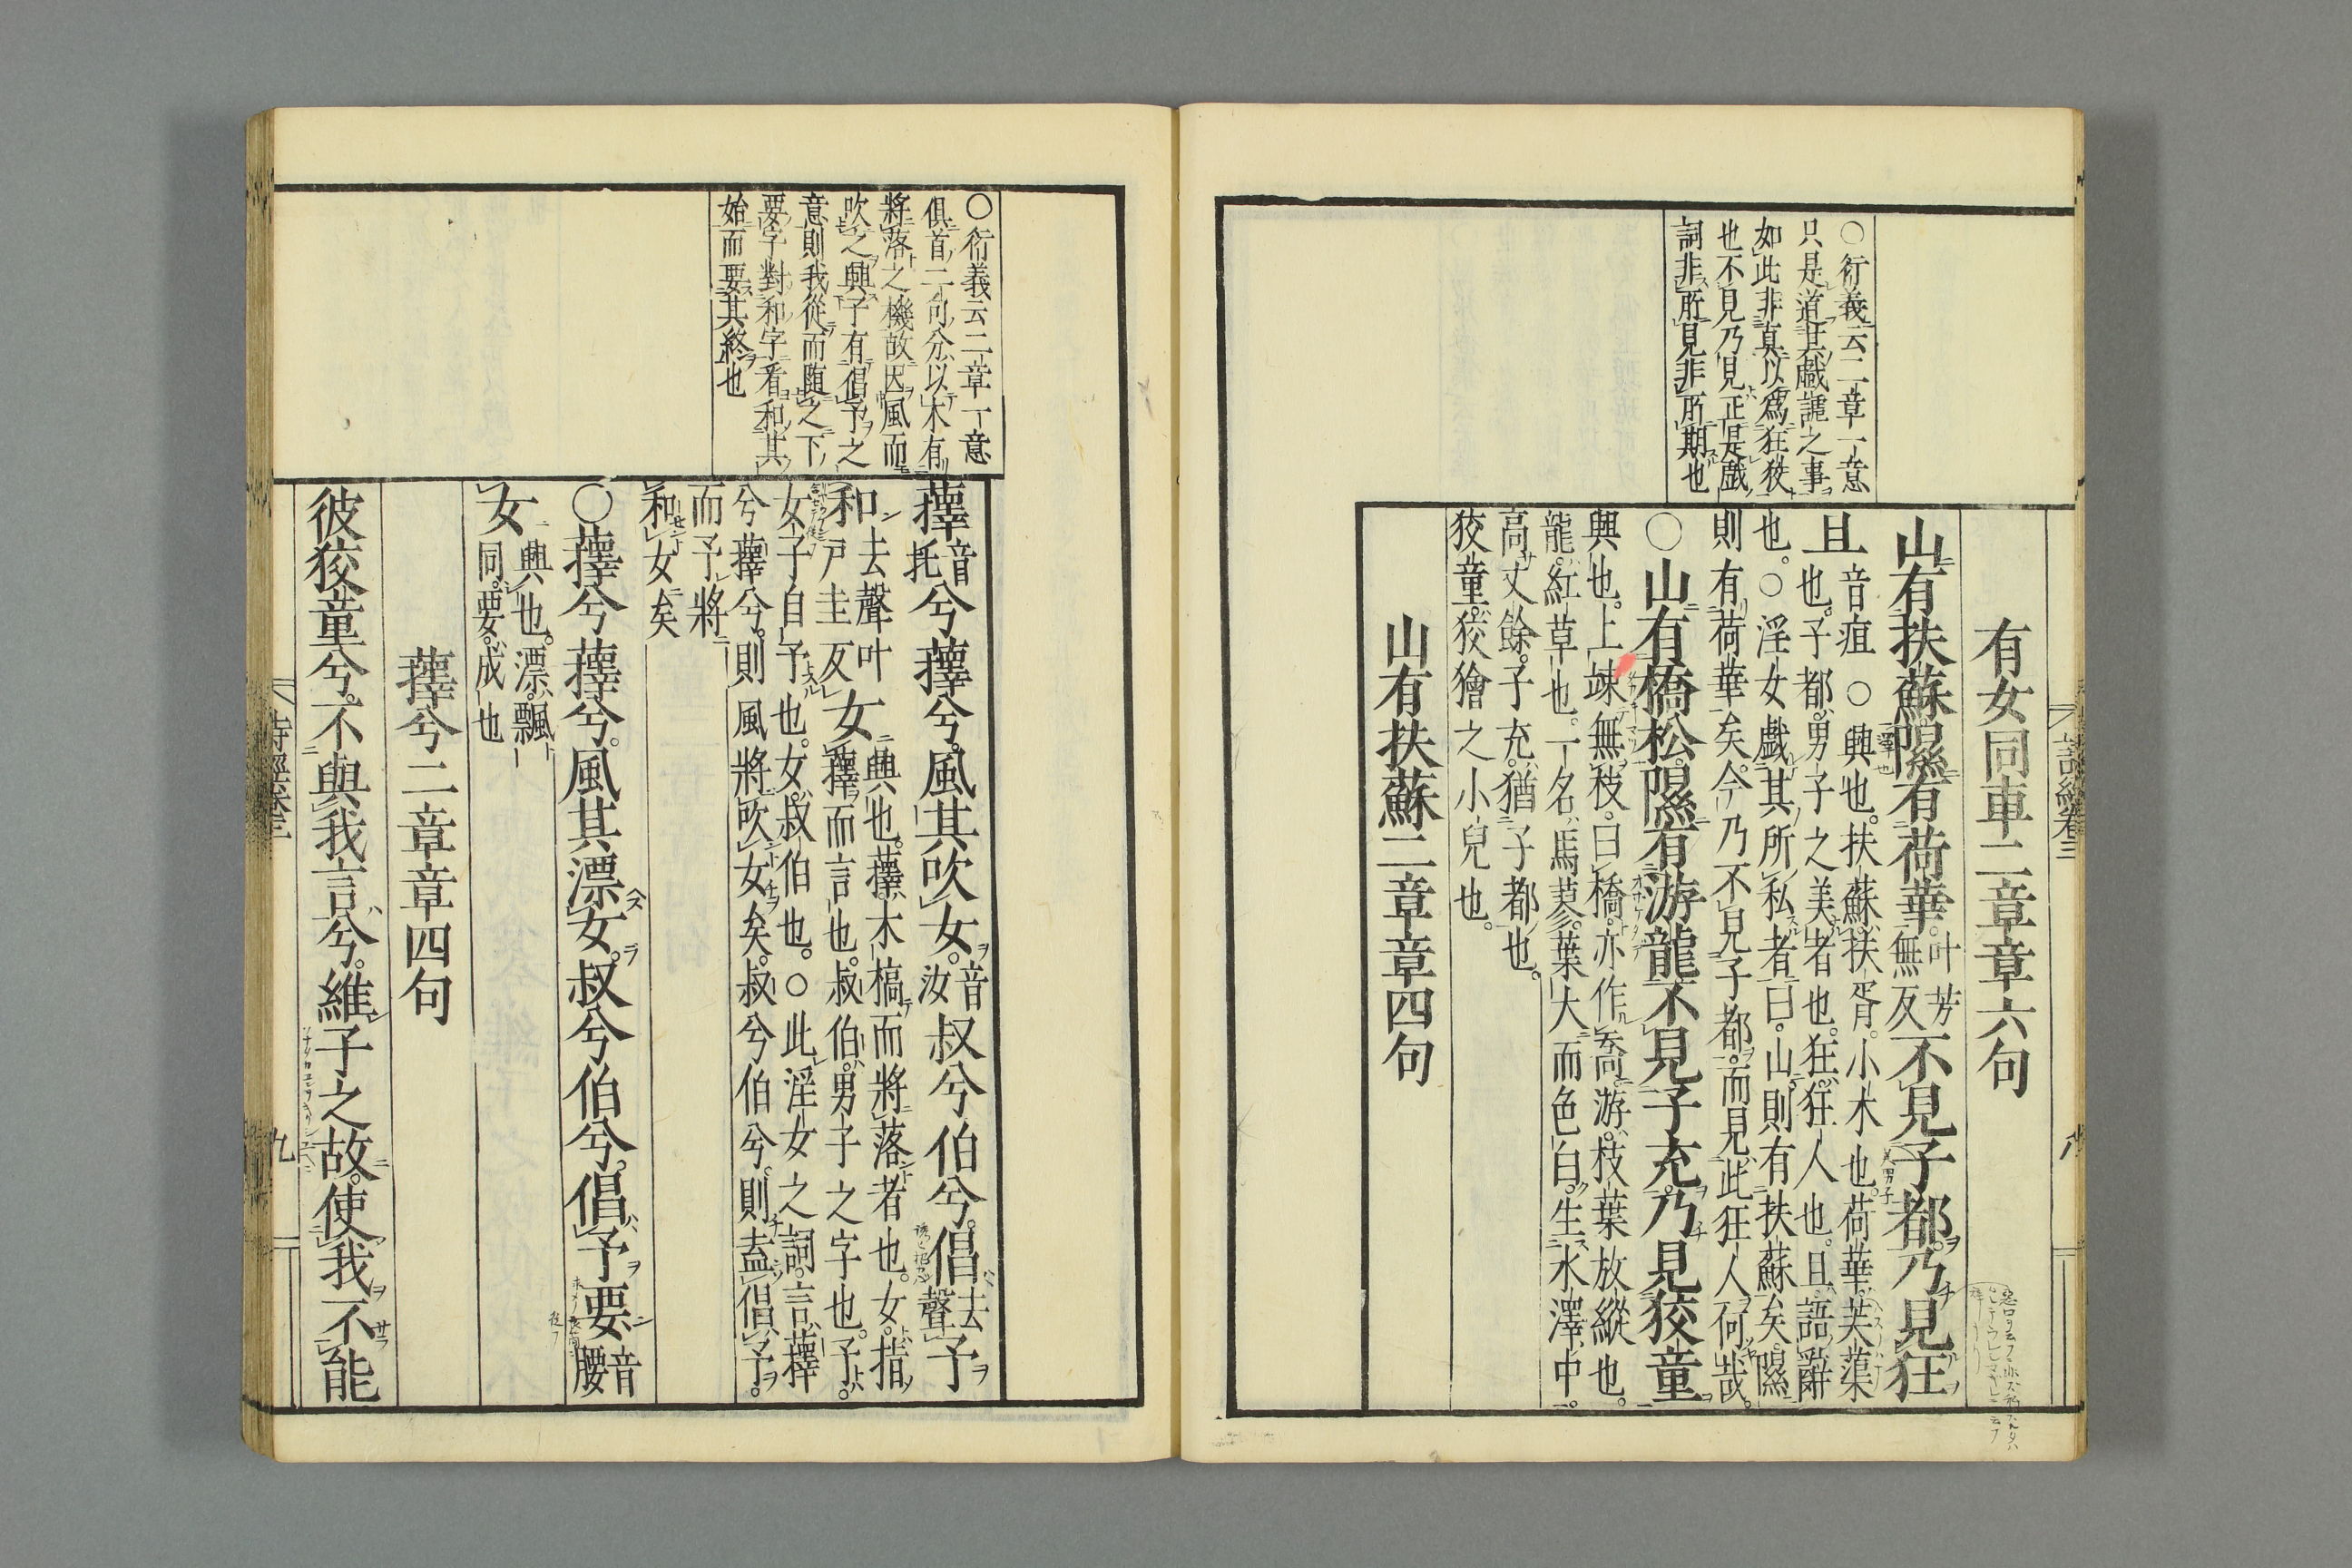 詩經卷三
八
○衍義云二章一意
只是道其戲謔之事
如此非真以爲狂狡
也不見乃見正是戲
詞非所見非所期也
有女同車二章章六句
山有扶蘇隰有荷華叶芳無反不見子都乃見狂
且音疽○興也扶蘇扶胥小木也荷華芙蕖
也子都男子之美者也狂狂人也且語辭
也○淫女戲其所私者曰山則有扶蘇矣隰
則有荷華矣今乃不見子都而見此狂人何哉
○山有橋松隰有游龍不見子充乃見狡童
興也上竦無枝曰橋亦作喬游枝葉放縱也
龍紅草也一名馬蓼葉大而色白生水澤中
高丈餘子充猶子都也
狡童狡獪之小兒也
山有扶蘇二章章四句
○衍義云二章一意
俱首二句分以木有
將落之機故因風而
吹之興子有倡予之
意則我從而隨之下
要字對和字看和其
始而要其終也
蘀音托兮蘀兮風其吹女音汝叔兮伯兮倡去聲予
和去聲叶戸圭反女興也蘀木槁而將落者也女指
蘀而言也叔伯男子之字也予
女子自予也女叔伯也○此淫女之詞言蘀
兮蘀兮則風將吹女矣叔兮伯兮則盍倡予
而予將
和女矣
○蘀兮蘀兮風其漂女叔兮伯兮倡予要音腰
女興也漂飄
同要成也
蘀兮二章章四句
彼狡童兮不與我言兮維子之故使我不能
詩經卷三
九